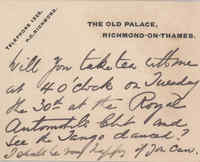 TELEPHONE 1325,
P.O. RICHMOND.
THE OLD PALACE,
RICHMOND-ON-THAMES.
Will you take tea with me
at 4 o'clock on Tuesday
the 30th at the Royal
Automobile Club and
see the Tango danced?
I shall be very happy if you can.